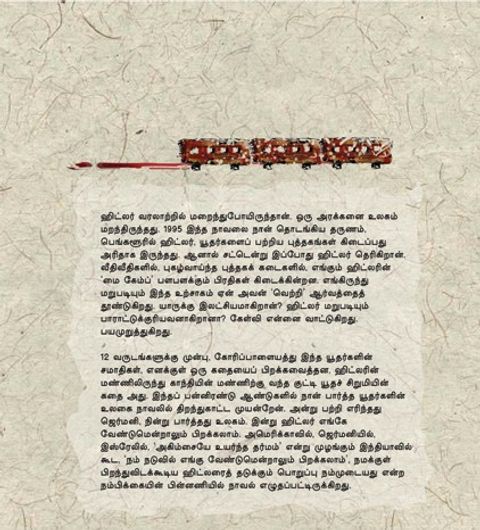 ஹிட்லர் வரலாற்றில் மறைந்துபோயிருந்தான். ஒரு அரக்கனை உலகம்
மறந்திருந்தது. 1995 இந்த நாவலை நான் தொடங்கிய தருணம்,
பெங்களூரில் ஹிட்லர், யூதர்களைப் பற்றிய புத்தகங்கள் கிடைப்பது
அரிதாக இருந்தது. ஆனால் சட்டென்று இப்போது ஹிட்லர் தெரிகிறான்.
வீதிவீதிகளில், புகழ்வாய்ந்த புத்தகக் கடைகளில், எங்கும் ஹிட்லரின்
'மை கேம்ப்' பளபளக்கும் பிரதிகள் கிடைக்கின்றன. எங்கிருந்து
மறுபடியும் இந்த உற்சாகம் ஏன் அவன் 'வெற்றி' ஆர்வத்தைத்
தூண்டுகிறது. யாருக்கு இலட்சியமாகிறான்? ஹிட்லர் மறுபடியும்
பாராட்டுக்குரியவனாகிறானா? கேள்வி என்னை வாட்டுகிறது.
பயமுறுத்துகிறது.
12 வருடங்களுக்கு முன்பு, கோரிப்பாளையத்து இந்த யூதர்களின்
சமாதிகள், எனக்குள் ஒரு கதையைப் பிறக்கவைத்தன. ஹிட்லரின்
மண்ணிலிருந்து காந்தியின் மண்ணிற்கு வந்த குட்டி யூதச் சிறுமியின்
கதை அது. இந்தப் பன்னிரண்டு ஆண்டுகளில் நான் பார்த்த யூதர்களின்
உலகை நாவலில் திறந்துகாட்ட முயன்றேன். அன்று பற்றி எரிந்தது
ஜெர்மனி, நின்று பார்த்தது உலகம். இன்று ஹிட்லர் எங்கே
வேண்டுமென்றாலும் பிறக்கலாம். அமெரிக்காவில், ஜெர்மனியில்,
இஸ்ரேலில், 'அகிம்சையே உயர்ந்த தர்மம்' என்று முழங்கும் இந்தியாவில்
கூட, 'நம் நடுவில் எங்கு வேண்டுமென்றாலும் பிறக்கலாம்'. நமக்குள்
பிறந்துவிடக்கூடிய ஹிட்லரைத் தடுக்கும் பொறுப்பு நம்முடையது என்ற
நம்பிக்கையின் பின்னணியில் நாவல் எழுதப்பட்டிருக்கிறது.